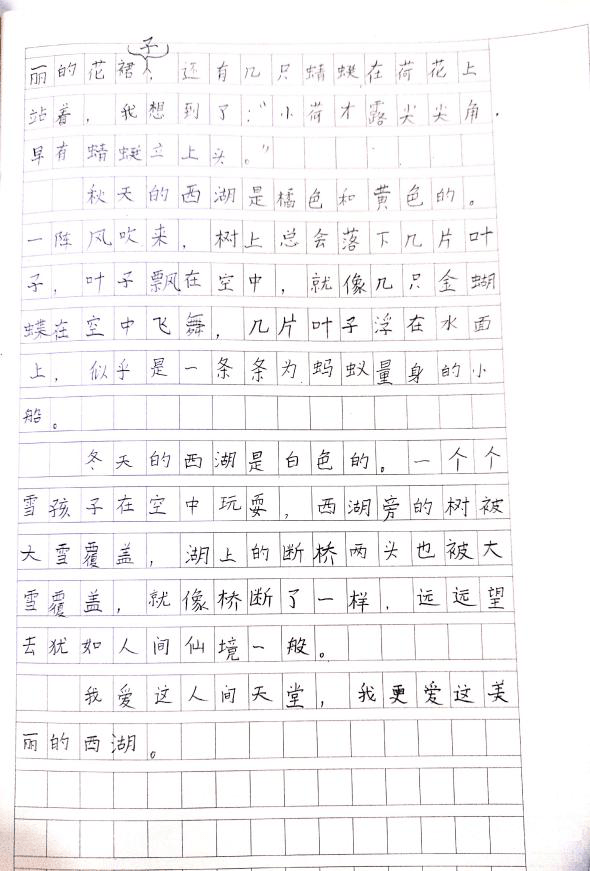 丽的花裙子，还有几只蜻蜓在荷花上
站着，我想到了：“小荷才露尖尖角，
早有蜻蜓立上头。”
秋天的西湖是橘色和黄色的。
一阵风吹来，树上总会落下几片叶
子，叶子飘在空中，就像几只金蝴
蝶在空中飞舞，几片叶子浮在水面
上，似乎是一条条为蚂蚁量身的小
船。
冬天的西湖是白色的。一个个
雪孩子在空中玩耍，西湖旁的树被
大雪覆盖，湖上的断桥两头也被大
雪覆盖，就像桥断了一样，远远望
去犹如人间仙境一般。
我爱这人间天堂，我更爱这美
丽的西湖。